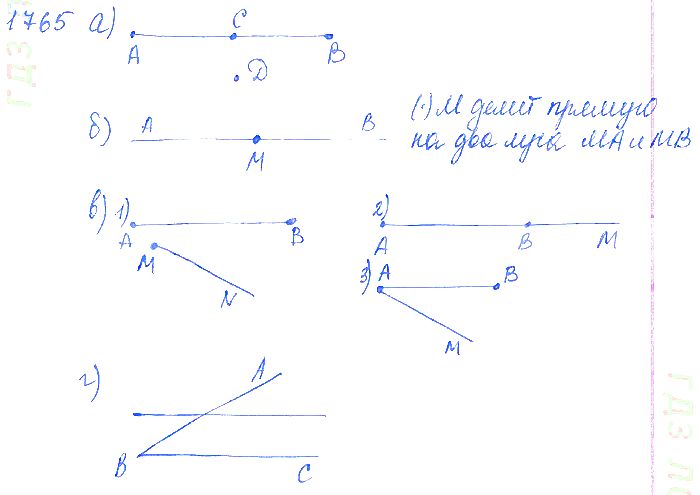 1765 а)
A C B
D
б) A M B
(·) M делит прямую
на два луча MA и MB
в) 1) A B
M N
2) A B M
3) A B
M
г) A
B C
ГДЗ
ГДЗ по